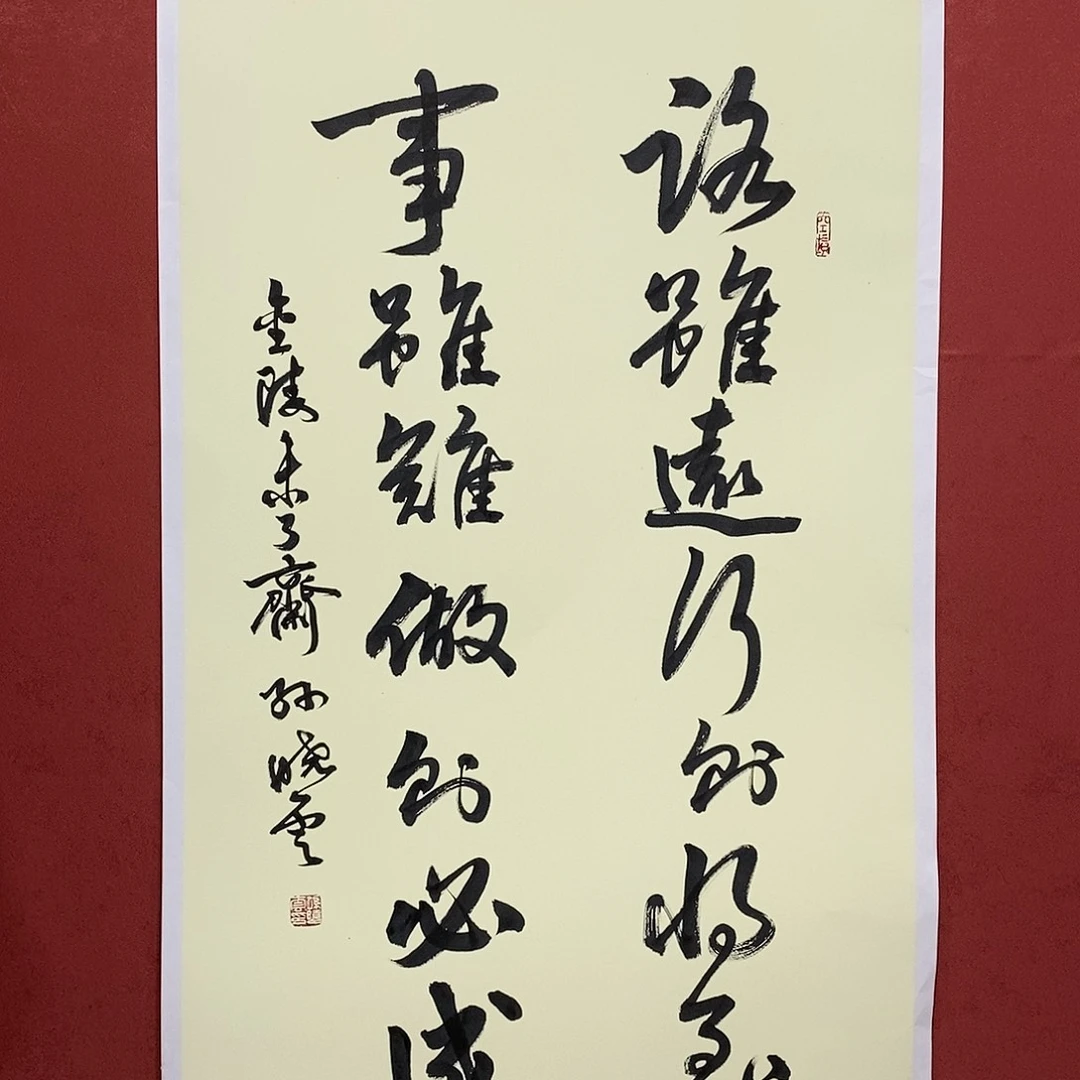 路雖遠行則將
事雖難做則必成
金陵未了齋孫曉雲